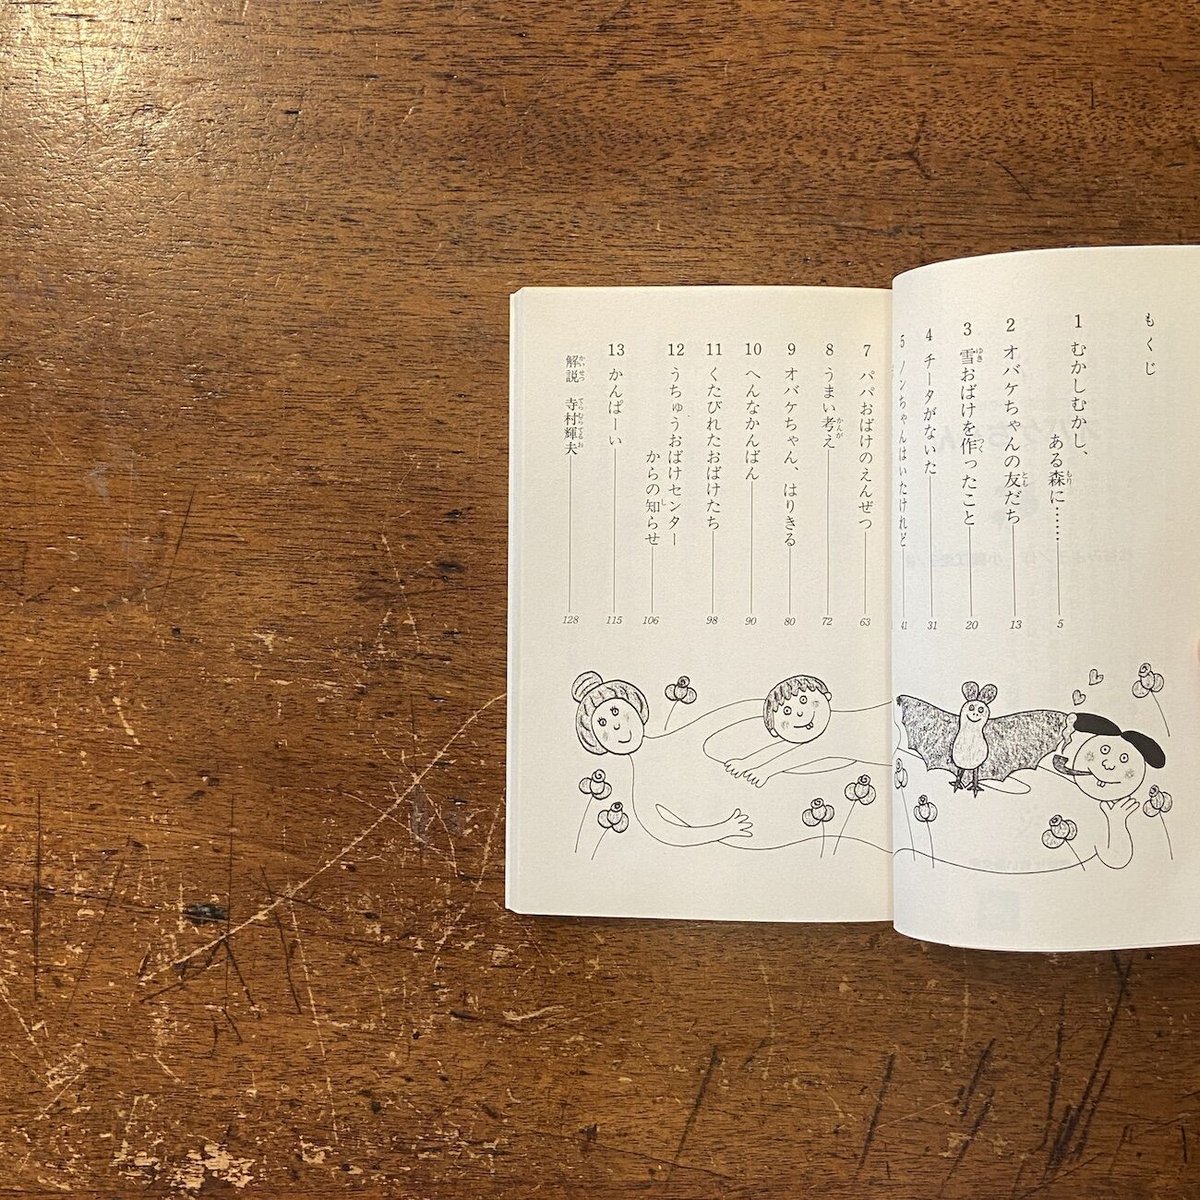 もくじ
1 むかしむかし、
ある森に……5
2 オバケちゃんの友だち 13
3 雪おばけを作ったこと 20
4 チータがないた 31
5 ノンちゃんはいたけれど 41
7 パパおばけのえんぜつ 63
8 うまい考え 72
9 オバケちゃん、はりきる 80
10 へんなかんばん 90
11 くたびれたおばけたち 98
12 うちゅうおばけセンター
からの知らせ 106
13 かんぱーい 115
解説 寺村輝夫 128